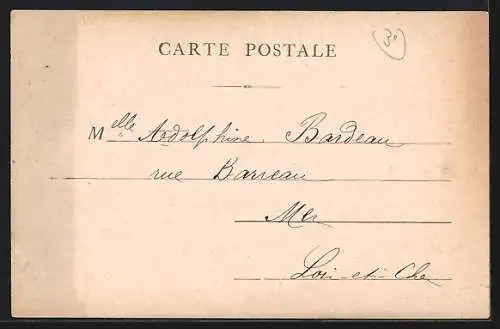 3°
CARTE POSTALE
Melle Ardolphine Bardeau
rue Barreau
Mer
Loir-et-Cher